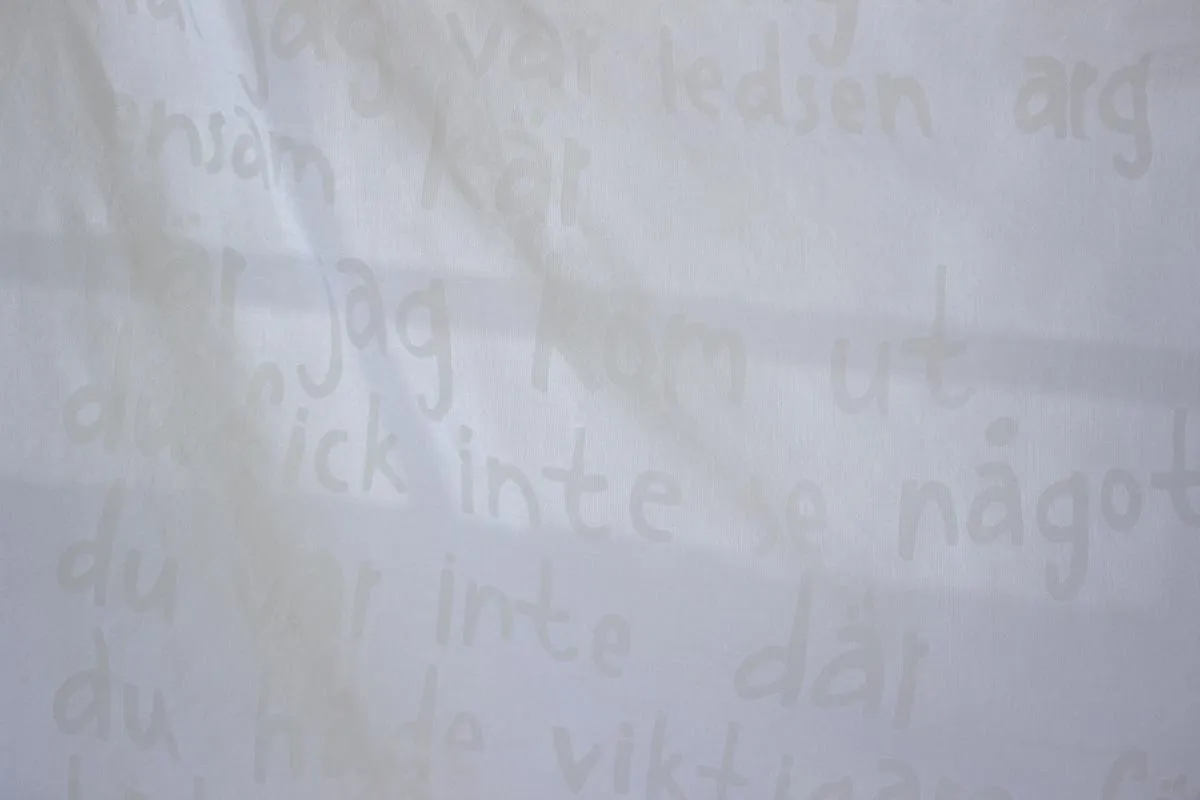 jag var ledsen arg
ensam kär
när jag kom ut
du fick inte se något
du var inte där
du hade viktigare